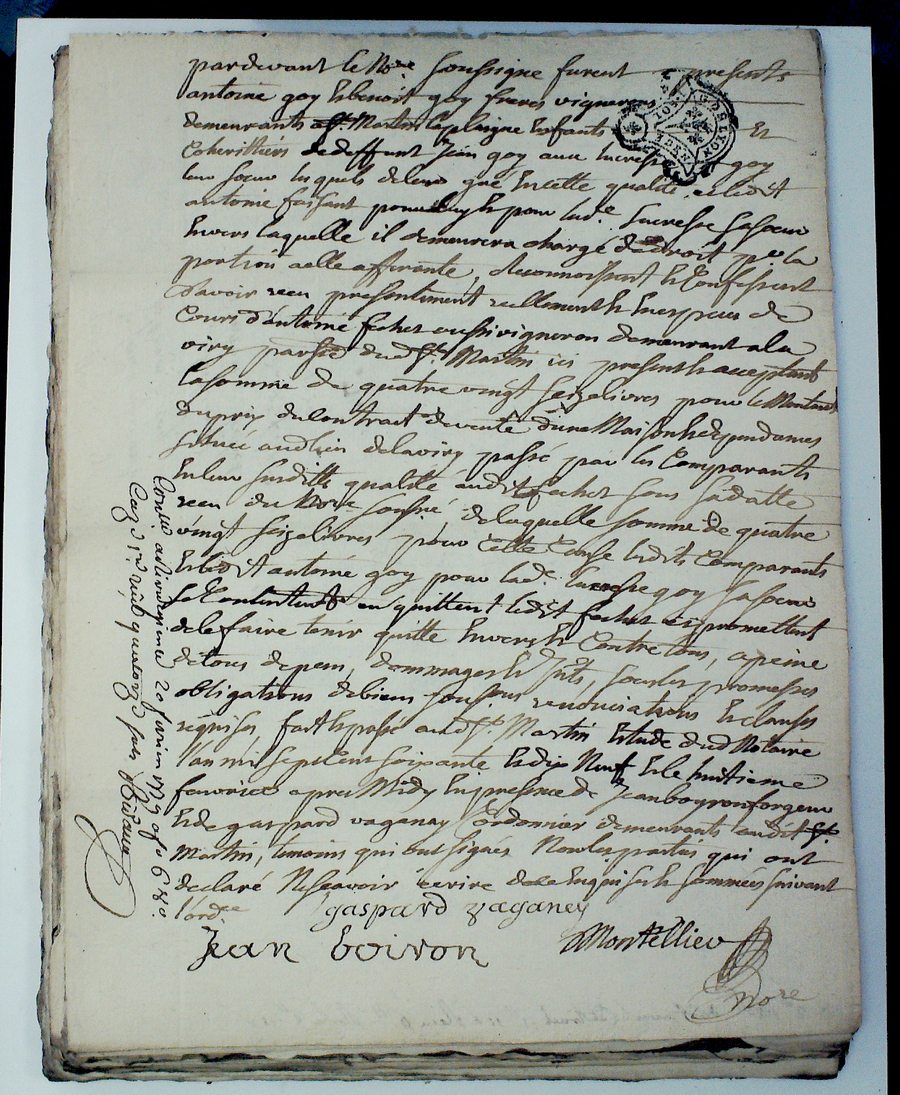 pardevant le No.re soussigné furent presents
antoine goy & benoit goy freres vignerons
demeurants a St. Martin la plaigne Enfants Et
Coherittiers de deffunt Jean goy aux lucresse goy
leur soeur lesquels de leur gré En cette qualité et ledit
antoine faisant pour luy & pour lad.e lucresse sa soeur
Envers laquelle il demeurera chargé de droit po.r la
portion a elle afferante, Reconnoissent & Confessent
davoir reçu presentiment reellement & En especes de
Cours d'antoine fechet aussi vigneron demeurant a la
viry parsse dud St. Martin ici present & acceptant
la somme de quatre vingt seize livres pour le Montant
du prix du Contract de vente d'une Maison & dependances
scituée aud lieu de la viry passé par les Comparants
En leur susditte qualité audit fechet sous sa datte
recu du No.re sousné de laquelle somme de quatre
vingt seize livres pour Cette Cause lesdits Comparants
& ledit antoine goy pour lad.e lucresse goy sa soeur
se Contentent en quittent ledit fechet & promettent
de le faire tenir quitte Envers & Contre tous, a peine
de tous depens, dommages & Jnts, sous les promesses
obligations de biens sousmis renonciations & clauses
requises, fait & passé aud St. Martin Etude dud Notaire
l'an mil sept cent soixante & dix Neuf & le huitieme
fevrier apres Midy En presence de Jean boyron forgeur
& de gaspard vaganay Cordonier demeurants audit St.
Martin, temoins qui ont signés Non les parties qui ont
declaré Ne scavoir écrire de ce Enquis & sommées suivant
l'ord.ce
gaspard vaganey
Jean boiron
Montellier
No.re
Conlé a rivedegier ce 20 fevrier 1779 g.o 6 v.o
Reçu quatorze sols